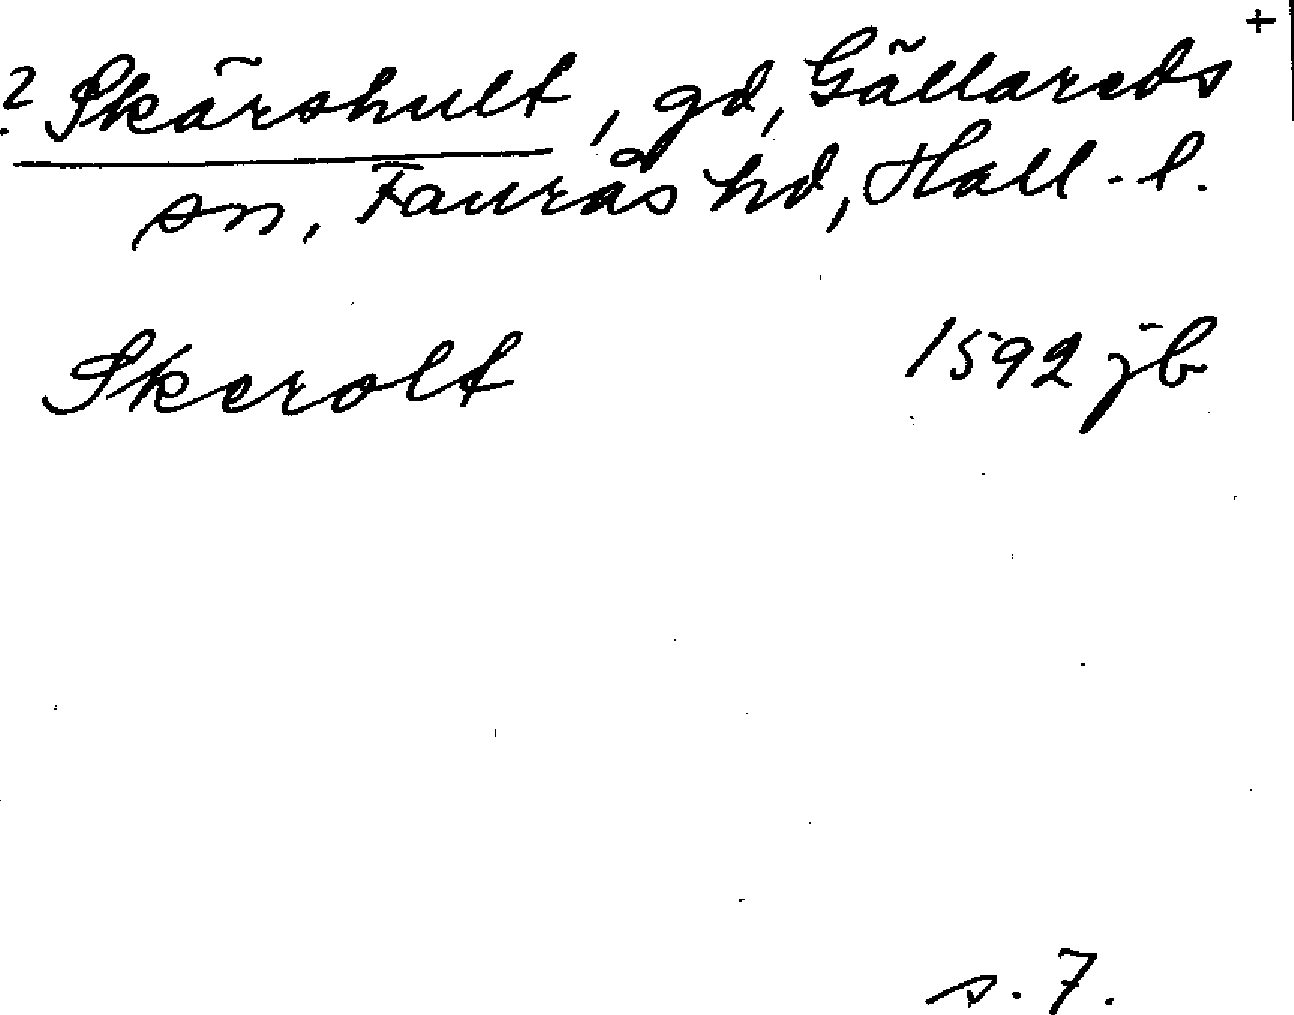 +
? Skärshult, gd, Gällareds
sn, Faurås hd, Hall. l.
Skerolt 1592 jb
s. 7.